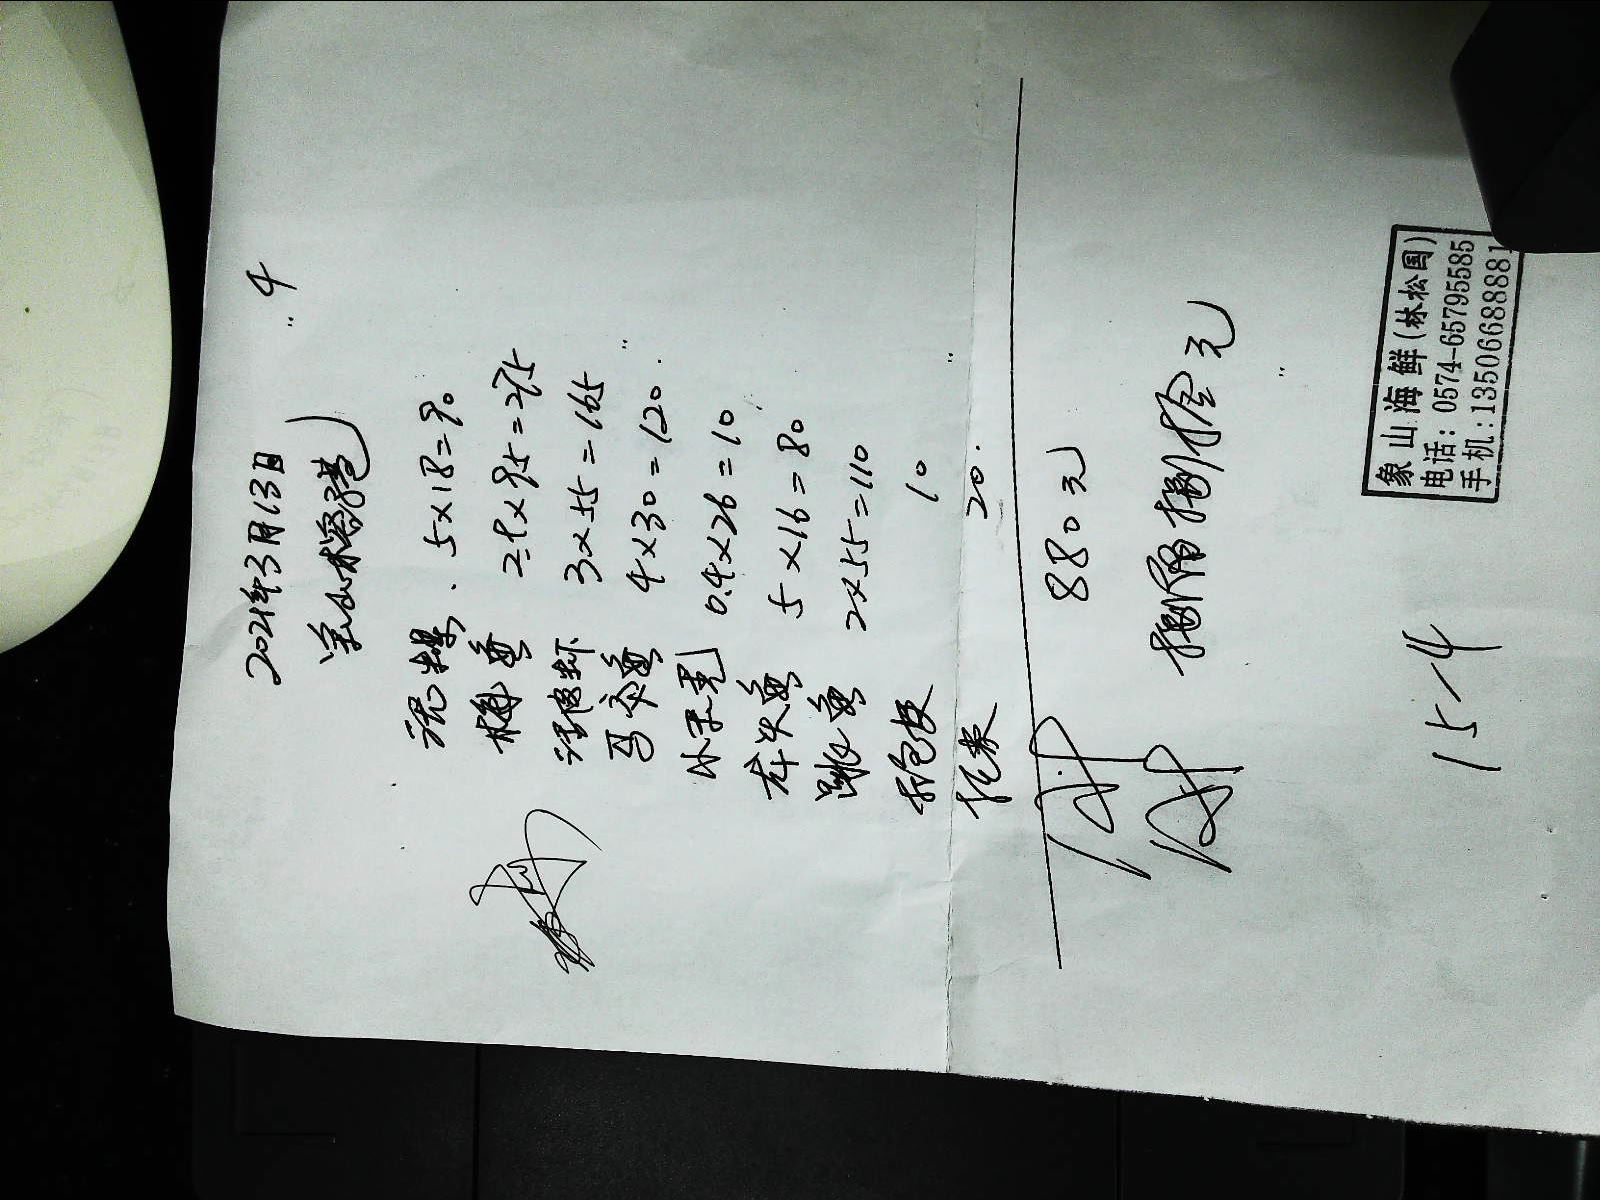 4
2021年3月13日
5×18=90
梅鱼 2.9×95=275
3×55=165
马交鱼 4×30=120
0.4×26=10
龙头鱼 5×16=80
跳鱼 2×55=110
打包 10
20
880元
捌佰捌拾元
象山海鲜(林松国)
电话:0574-65795585
手机:13506688881
15-4